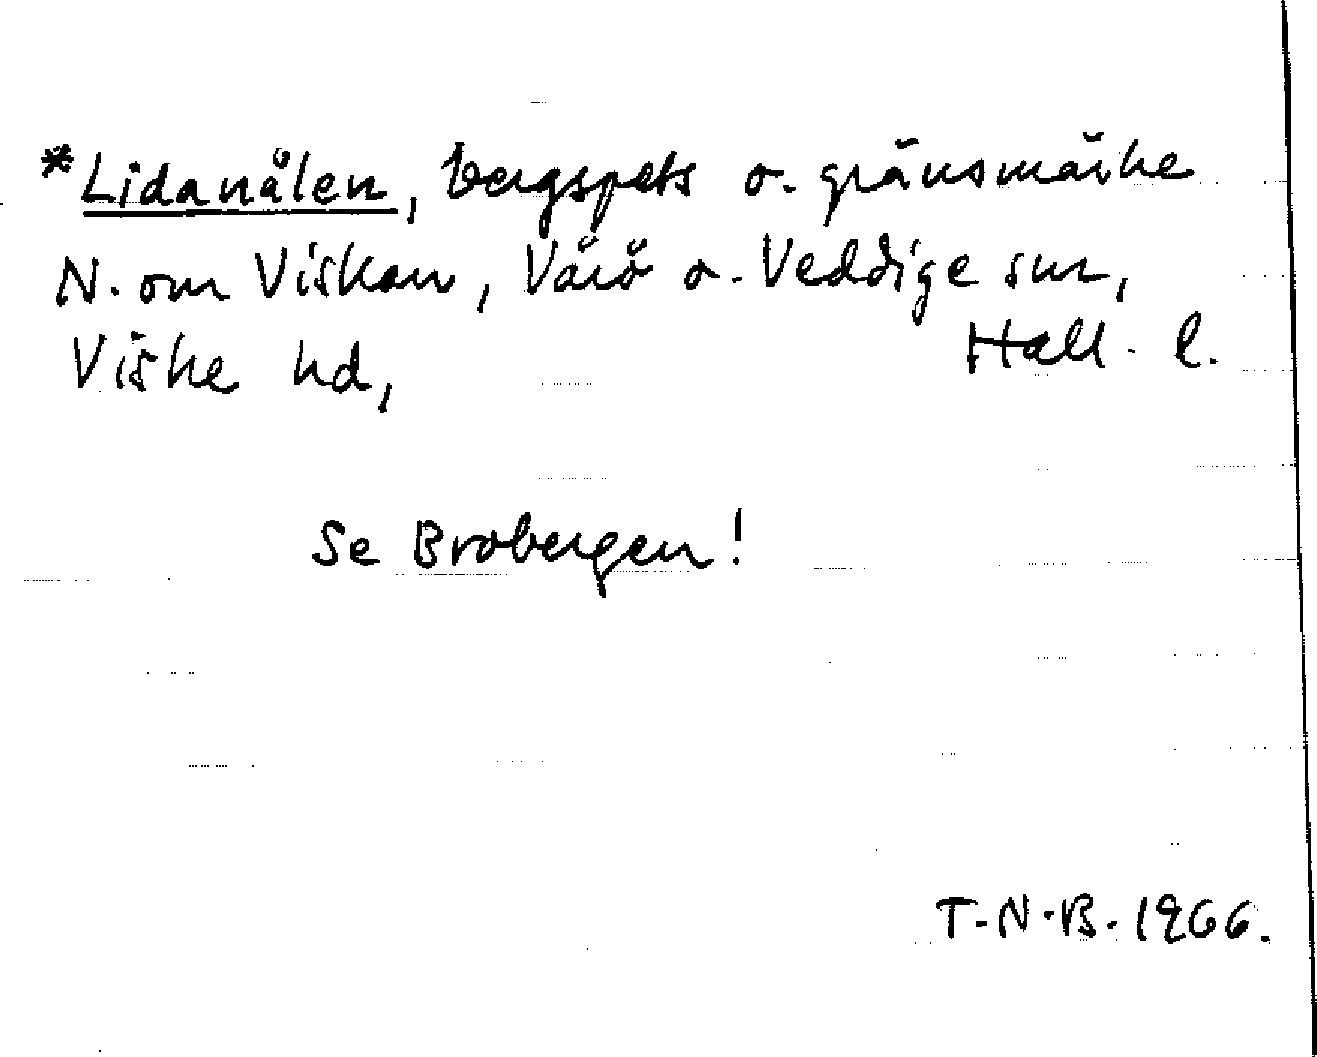 *Lidanålen, bergspets o. gränsmärke
N. om Viskan, Värö o. Veddige snr,
Viske hd, Hall. l.
Se Brobergen!
T.N.B. 1966.